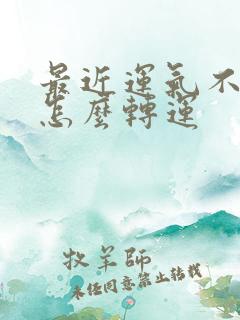 最近運氣不
怎麼轉運
牧羊師
未經同意禁止轉載